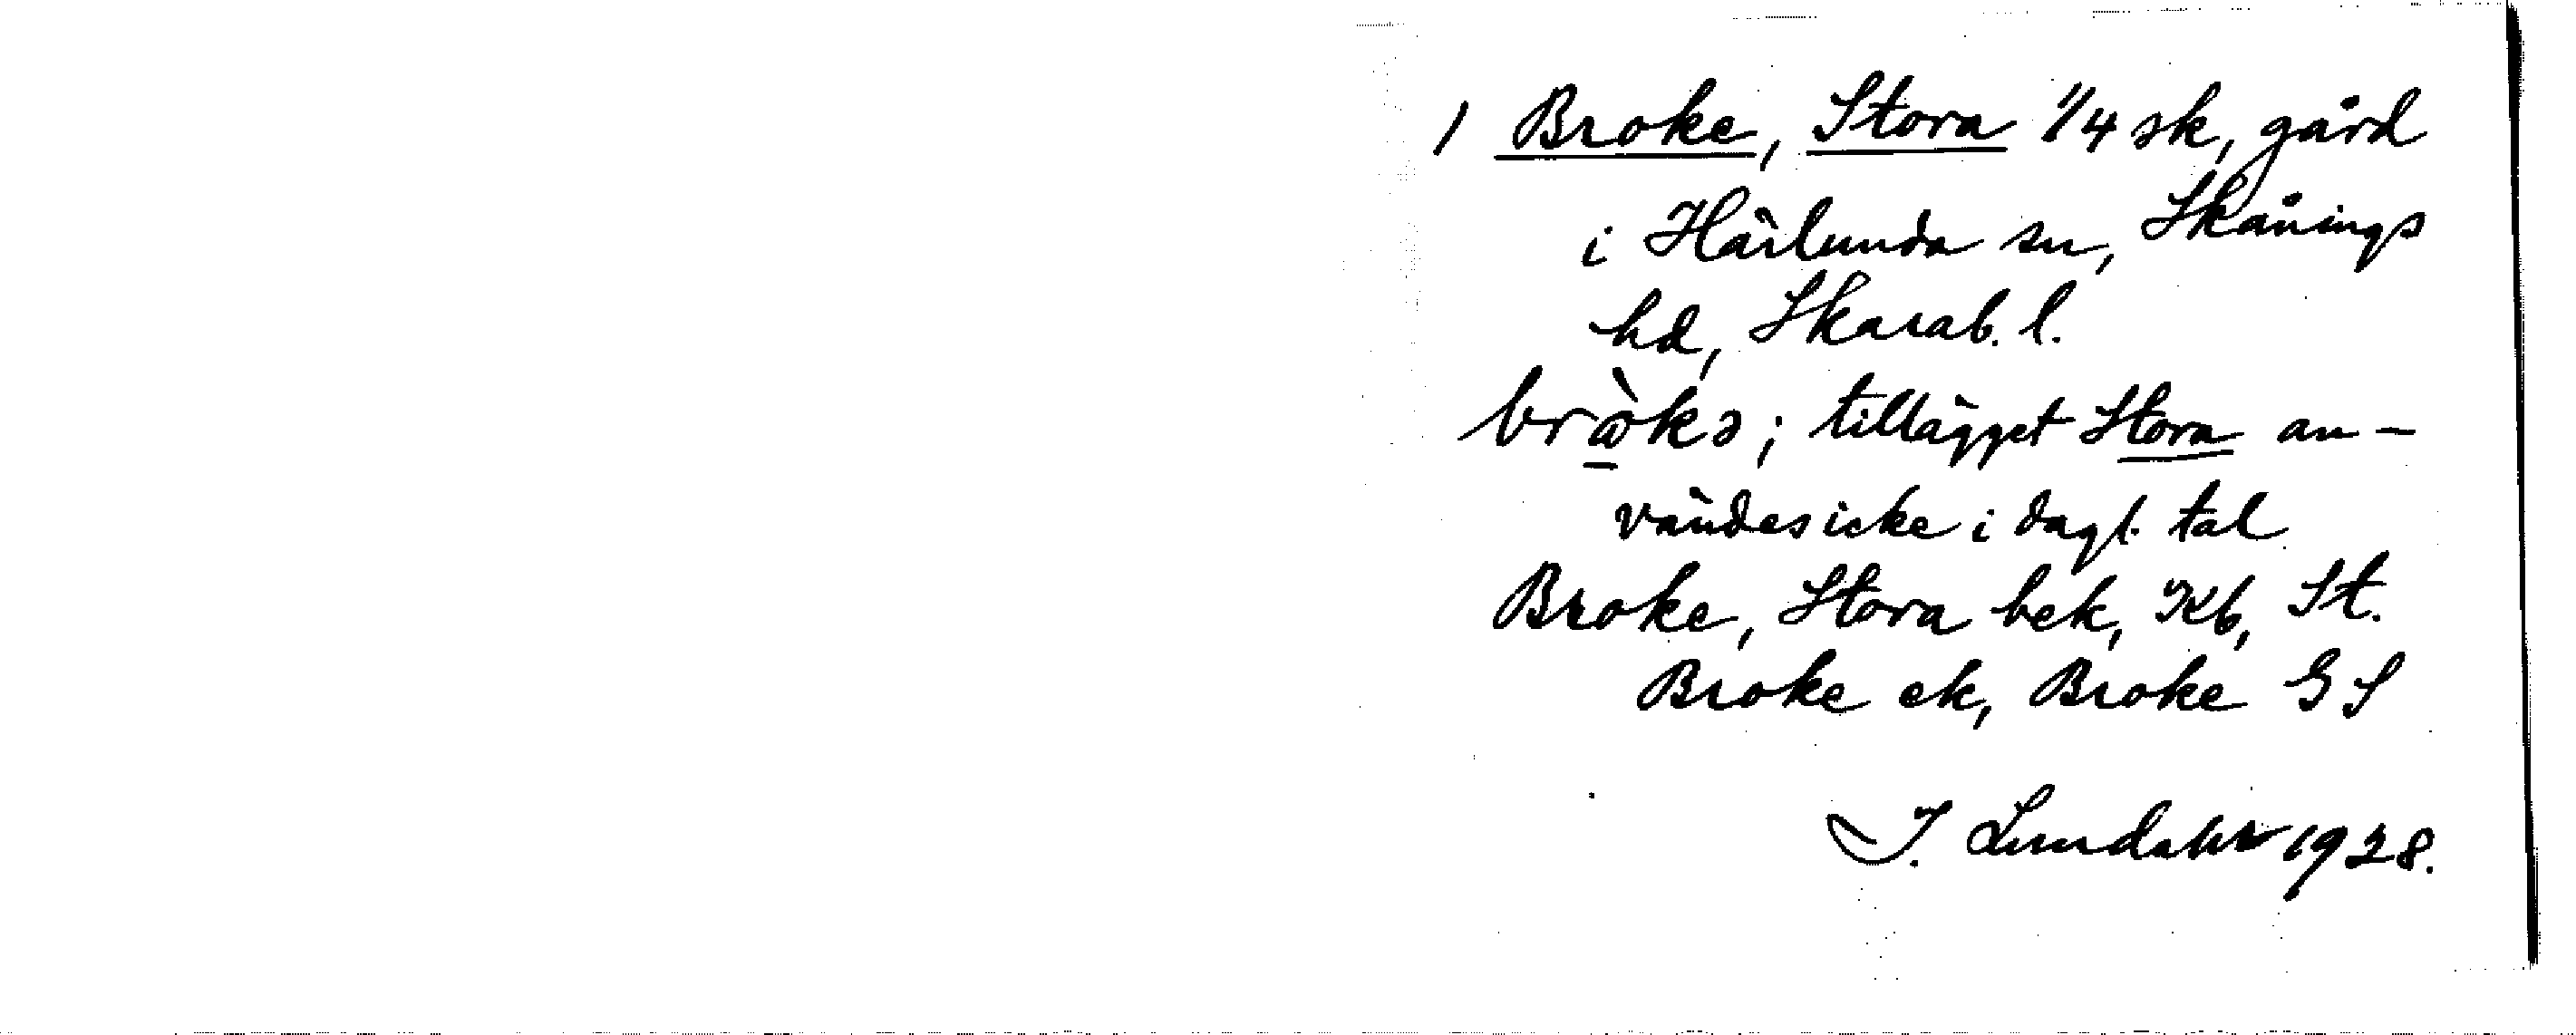 1 Broke, Stora 1/4 sk, gård
i Härlunda sn, Skånings
hd, Skarab. l.
bròkə; tillägget Stora an-
vändes icke i dagl. tal
Broke, Stora bek, Kb, St.
Broke ek, Broke GS
I. Lundahl 1928.